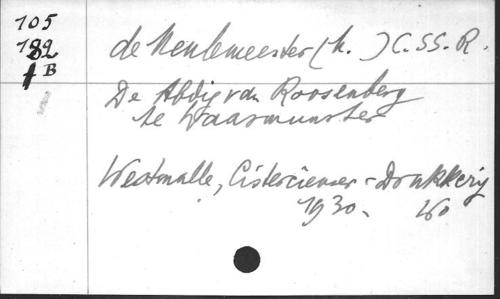 105
182
1 B
de Meulemeester (M. ) C.SS.R.
De Abdij van Roosenberg
te Waasmunster
Westmalle, Cistercienser-Drukkerij
1930.